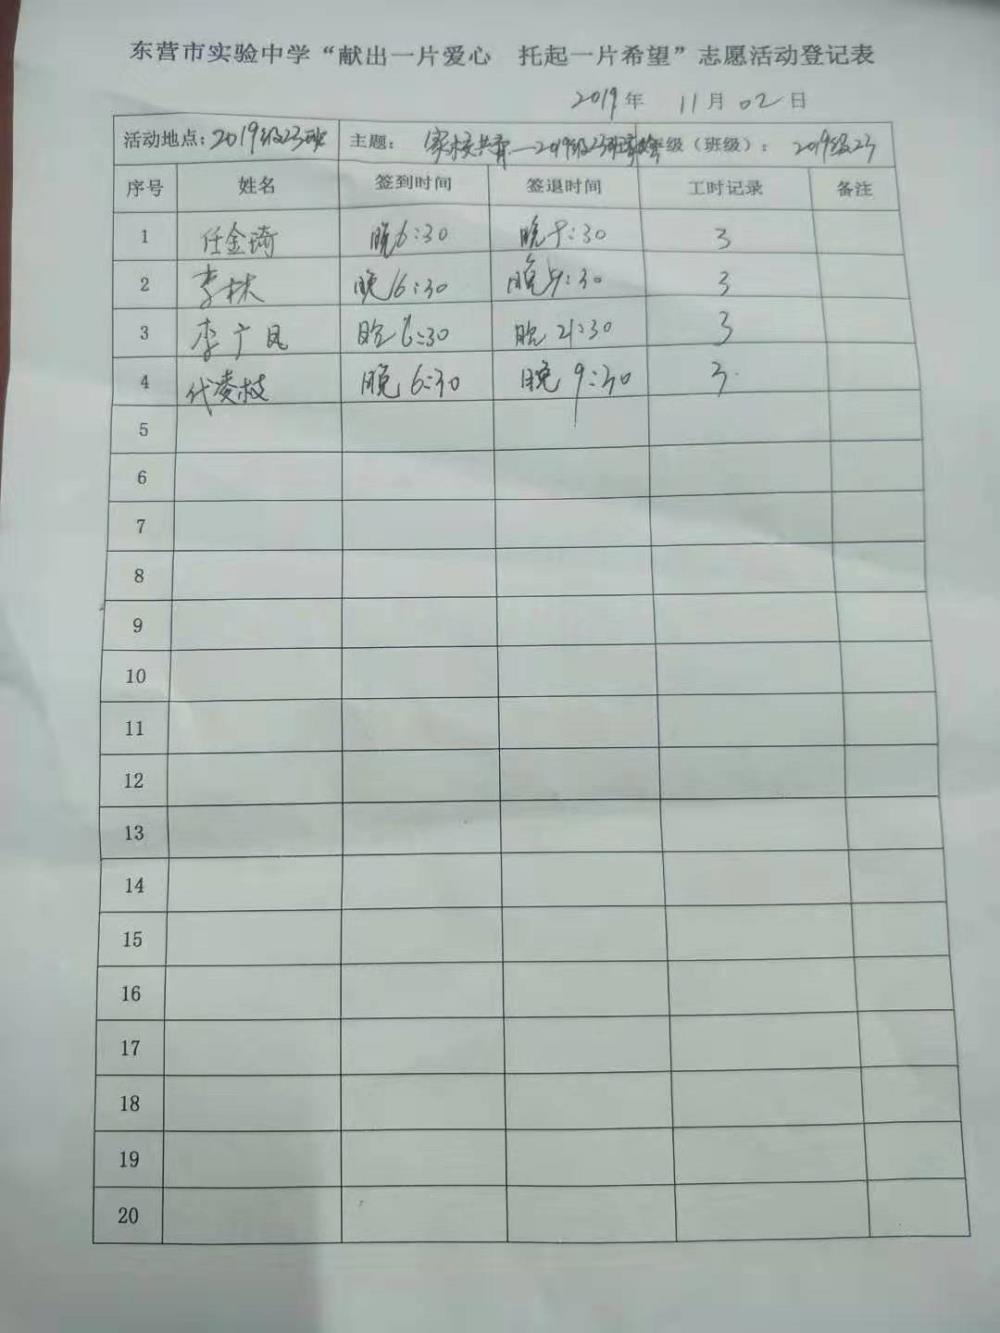 东营市实验中学“献出一片爱心 托起一片希望”志愿活动登记表
2019年 11月02日
活动地点：2019级23班 主题：家校共育—2019级23班 级（班级）：2019级23
序号 姓名 签到时间 签退时间 工时记录 备注
1 任金琦 晚6:30 晚9:30 3
2 李林 晚6:30 晚9:30 3
3 李广凤 晚6:30 晚21:30 3
4 代凌枝 晚6:30 晚9:30 3
5
6
7
8
9
10
11
12
13
14
15
16
17
18
19
20